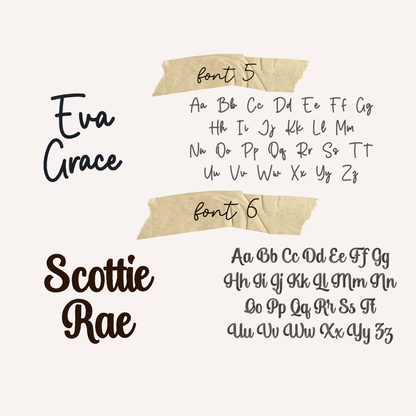 font 5
Eva
Grace
Aa Bb Cc Dd Ee Ff Gg
Hh Ii Jj Kk Ll Mm
Nn Oo Pp Qq Rr Ss TT
Uu Vv Ww Xx Yy Zz
font 6
Scottie
Rae
Aa Bb Cc Dd Ee Ff Gg
Hh Ii Jj Kk Ll Mm Nn
Oo Pp Qq Rr Ss Tt
Uu Vv Ww Xx Yy Zz